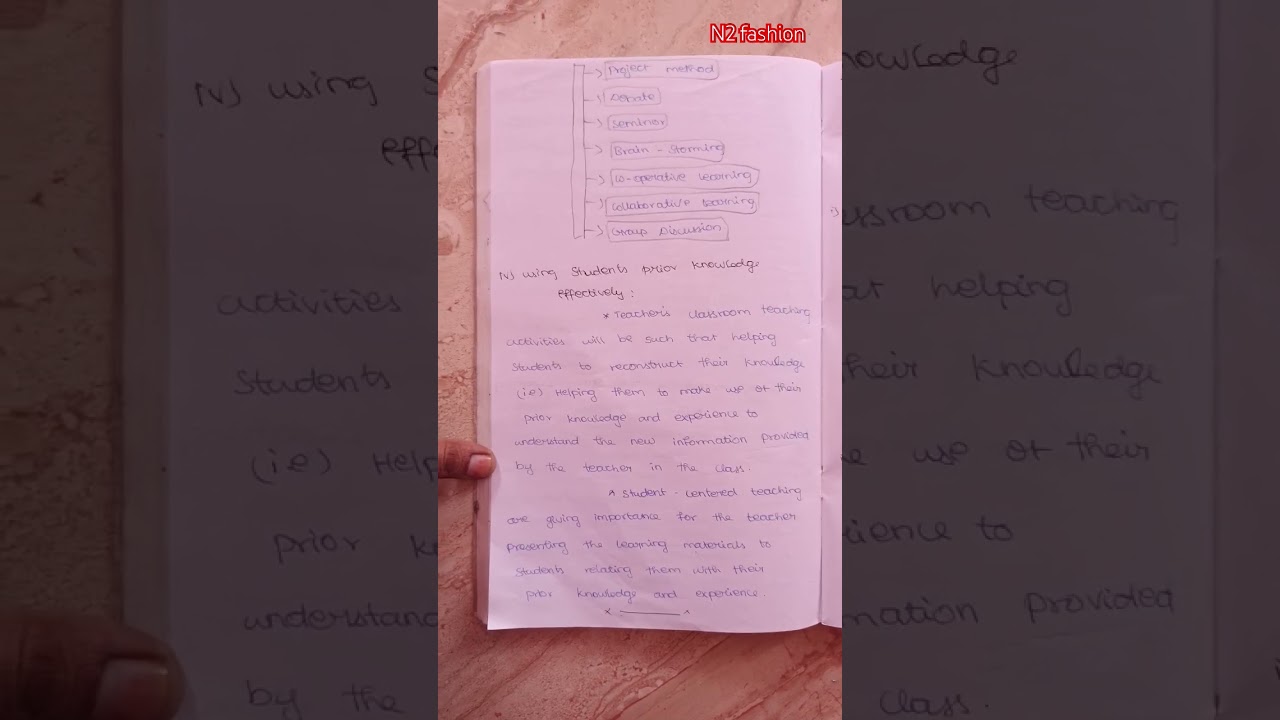 N2 fashion
Project method
Debate
Seminior
Brain - Storming
Co-operative Learning
Collaborative Learning
Group Discussion
IV) using Students prior knowledge
effectively :
* Teacher's classroom teaching
activities will be such that helping
Students to reconstruct their knowledge
(i.e) Helping them to make use of their
prior knowledge and experience to
understand the new information provided
by the teacher in the class.
* Student - Centered teaching
are giving importance for the teacher
presenting the learning materials to
Students relating them with their
prior knowledge and experience.